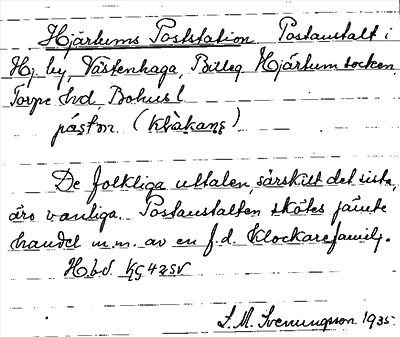 Hjärtums Poststation Postanstalt i
Hj. by, Västenhaga, Billeg Hjärtum socken,
Torpe hd, Bohusl
påston (klåkans)
De folkliga uttalen, särskilt det sista,
äro vanliga. Postanstalten skötes jämte
handel m.m. av en f.d. klockarefamilj.
Hbd
S. M. Svenungsson 1935.